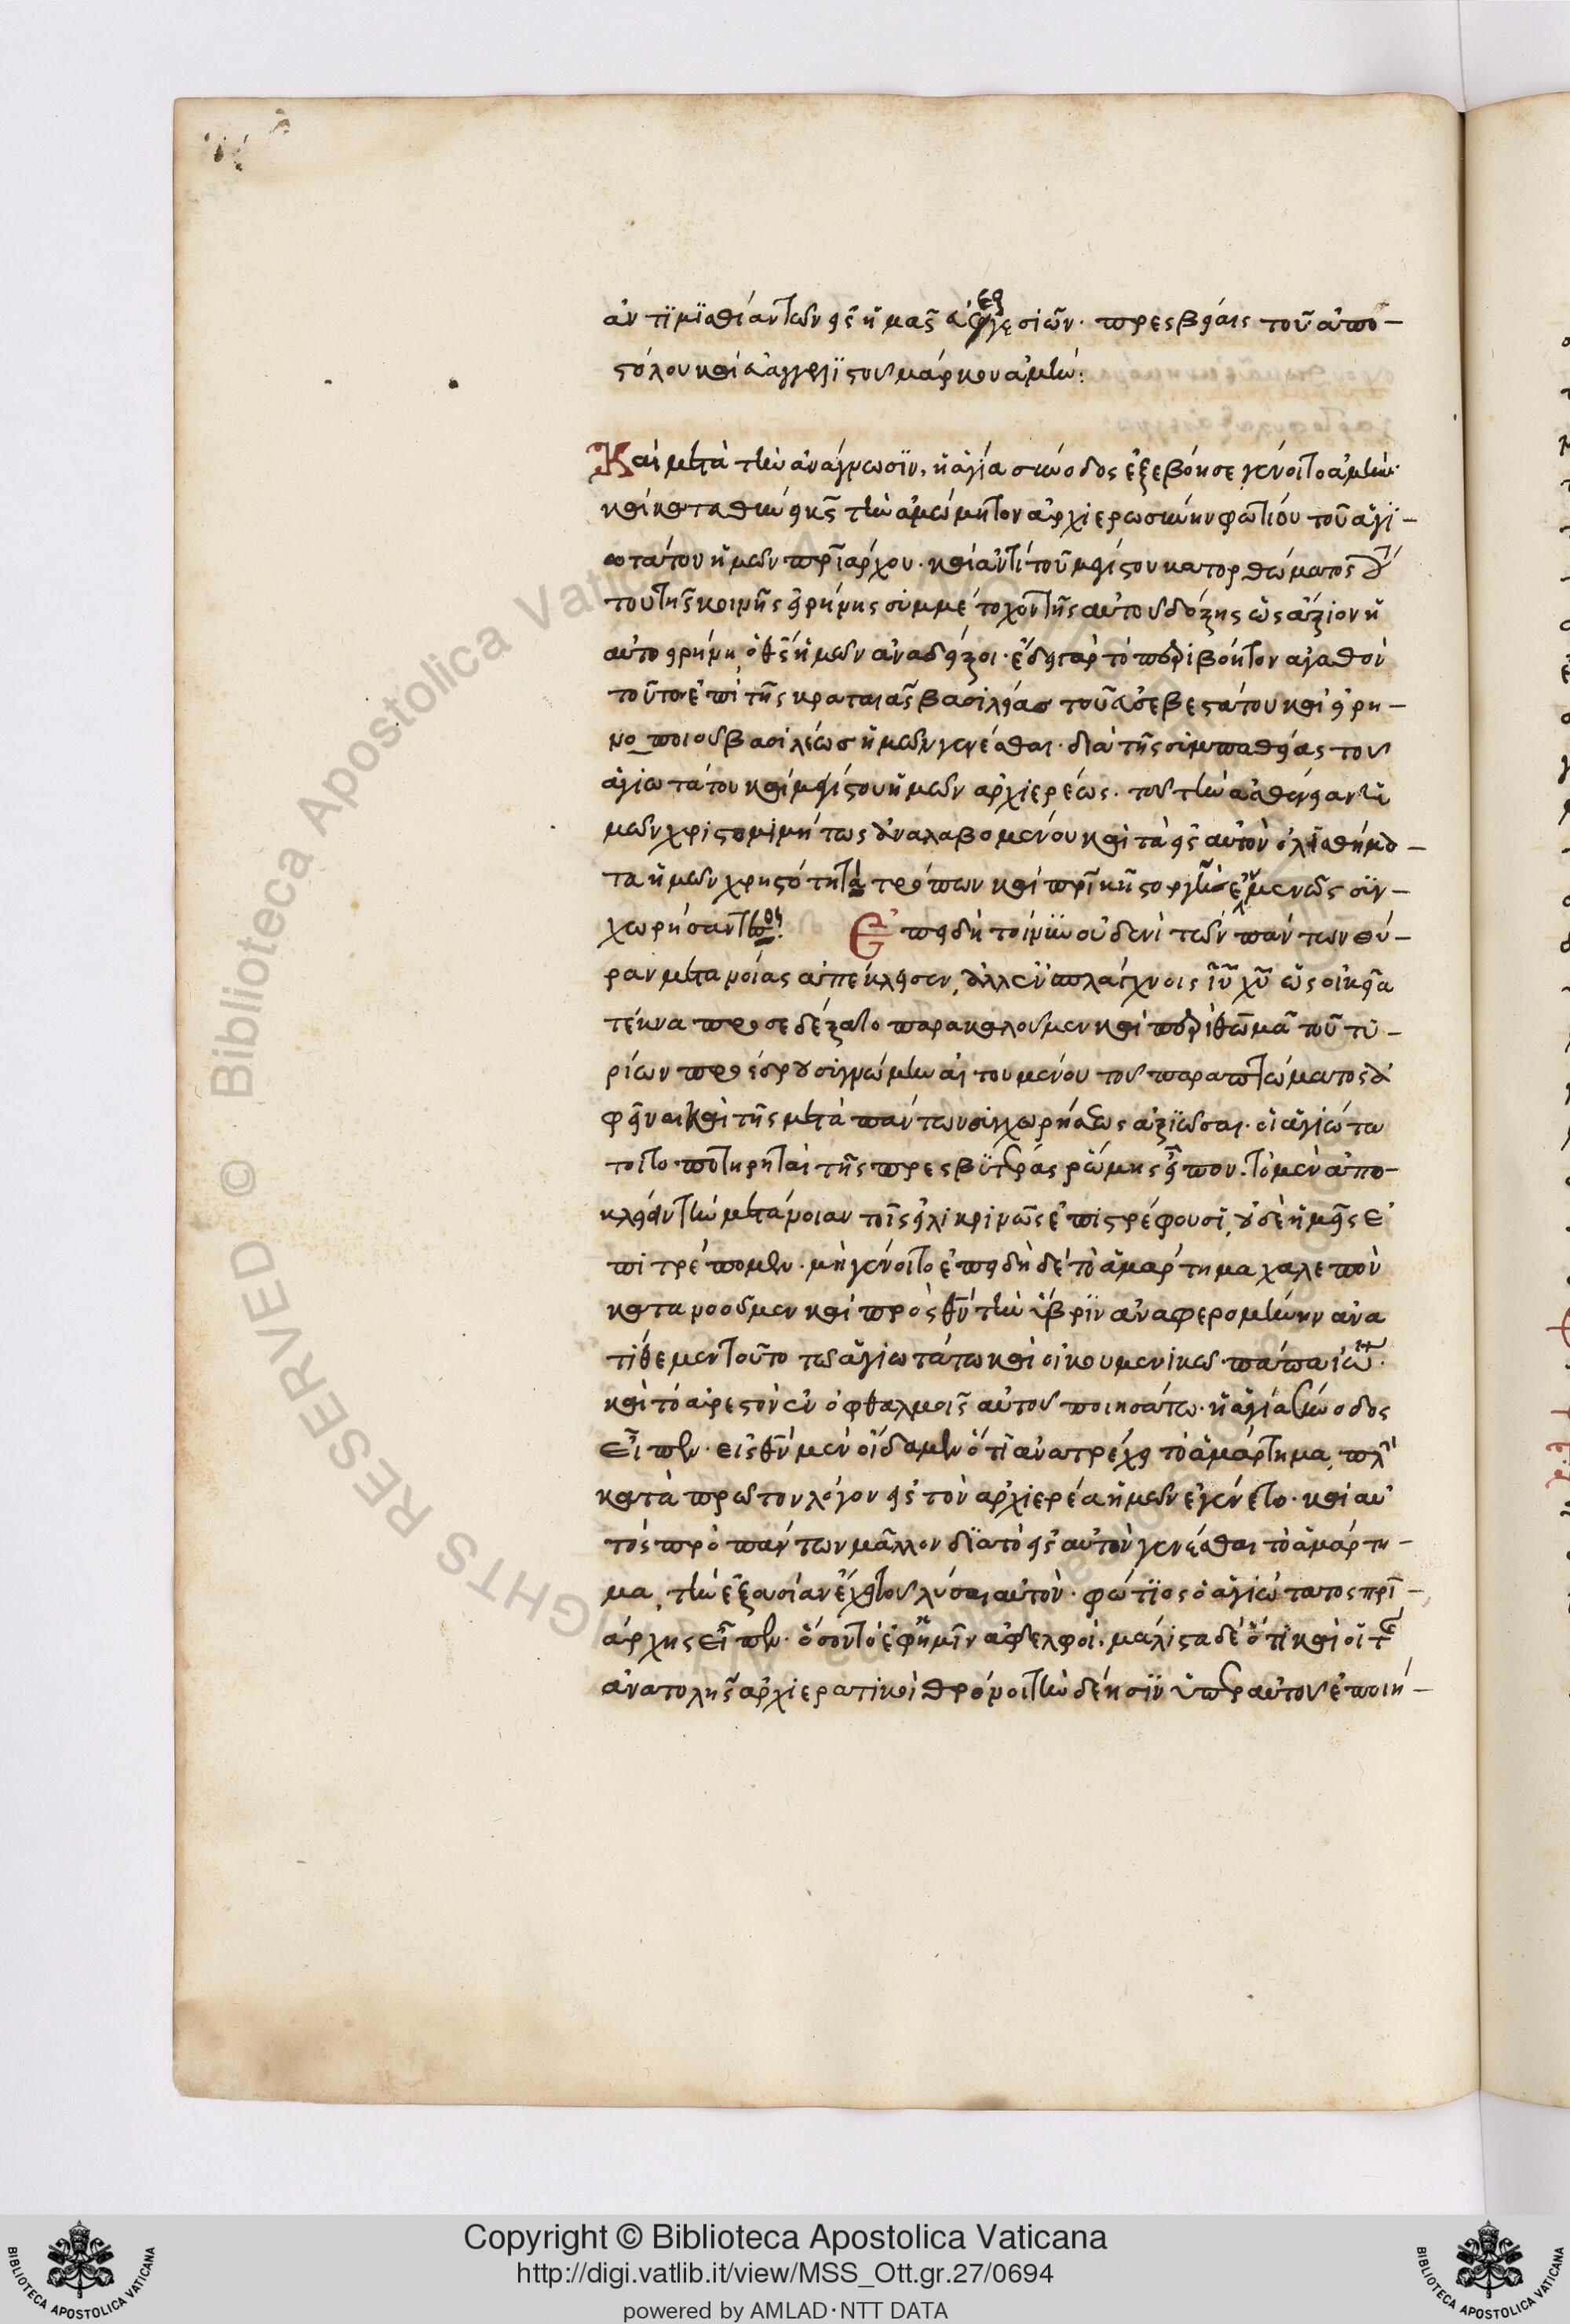 ἀντιμισθίαν τῶν εἰς ἡμᾶς εὐεργεσιῶν· πρεσβείαις τοῦ ἀπο-
στόλου καὶ εὐαγγελιστοῦ μάρκου ἀμήν:
Καὶ μετὰ τὴν ἀνάγνωσιν, ἡ ἁγία σύνοδος ἐξεβόησε γένοιτο ἀμήν·
καὶ κατευθύνει κς τὴν ἀμώμητον ἀρχιερωσύνην φωτίου τοῦ ἁγι-
ωτάτου ἡμῶν πριάρχου· καὶ ἀντὶ τοῦ μεγίστου κατορθώματος
τούτου τῆς κοινῆς εἰρήνης συμμέτοχον τῆς αὐτοῦ δόξης ὡς ἄξιον ἡ
αὐτοειρήνη ὁ θς ἡμῶν ἀναδείξοι· ἔδει γὰρ τὸ περιβόητον ἀγαθὸν
τοῦτο ἐπὶ τῆς κραταιᾶς βασιλείας τοῦ εὐσεβεστάτου καὶ εἰρη-
νοποιοῦ βασιλέως ἡμῶν γενέσθαι· διὰ τῆς συμπαθείας τοῦ
ἁγιωτάτου καὶ μεγίστου ἡμῶν ἀρχιερέως· τοῦ τὴν ἀσθένειαν ἡ
μῶν χριστομιμήτως ἀναλαβομένου καὶ τὰ εἰς αὐτὸν ὀλισθήμα-
τα ἡμῶν χρηστότητι τρόπων καὶ πρικῆ στοργῆ εὐμενῶς συγ-
χωρήσαντος: Ἐπειδὴ τοίνυν οὐδενὶ τῶν πάντων θύ-
ραν μετανοίας ἀπέκλεισεν, ἀλλ' ἐν σπλάγχνοις ιυ χυ ὡς οἰκεῖα
τέκνα προσεδέξατο παρακαλοῦμεν καὶ περὶ θωμᾶ τοῦ τυ-
ρίων προέδρου συγνώμην αἰτουμένου τοῦ παραπτώματος
φῆναι καὶ τῆς μετὰ πάντων συγχωρήσεως ἀξιῶσαι· οἱ ἁγιώτα
τοι τοποτηρηταὶ τῆς πρεσβυτέρας ῥώμης εἶπον· τὸ μὲν ἀπο-
κλείειν τὴν μετάνοιαν τοῖς εἰλικρινῶς ἐπιστρέφουσι, οὐδὲ ἡμεῖς ἐ
πιτρέπομεν· μὴ γένοιτο ἐπειδὴ δὲ τὸ ἁμάρτημα χαλεπὸν
κατανοοῦμεν καὶ πρὸς θν τὴν ὕβριν ἀναφερομένην ἀνα
τίθεμεν τοῦτο τῷ ἁγιωτάτω καὶ οἰκουμενικῶ πάπα ἰω·
καὶ τὸ ἀρεστὸν ἐν ὀφθαλμοῖς αὐτοῦ ποιησάτω· ἡ ἁγία σύνοδος
εἶπεν· εἰς θν μὲν οἴδαμεν ὅτι ἀνατρέχει τὸ ἁμάρτημα, πλὴν
κατὰ πρῶτον λόγον εἰς τὸν ἀρχιερέα ἡμῶν ἐγένετο· καὶ αὐ
τὸς πρὸ πάντων μᾶλλον διὰ τὸ εἰς αὐτὸν γενέσθαι τὸ ἁμάρτη-
μα, τὴν ἐξουσίαν ἔχει τοῦ λῦσαι αὐτόν· φώτιος ὁ ἁγιώτατος πρι-
άρχης εἶπεν· ὅσον τὸ ἐφ' ἡμῖν ἀδελφοὶ· μάλιστα δὲ ὅτι καὶ οἱ τῆς
ἀνατολῆς ἀρχιερατικοὶ θρόνοι τὴν δέησιν ὑπὲρ αὐτοῦ ἐποιή-
Copyright © Biblioteca Apostolica Vaticana
http://digi.vatlib.it/view/MSS_Ott.gr.27/0694
powered by AMLAD·NTT DATA